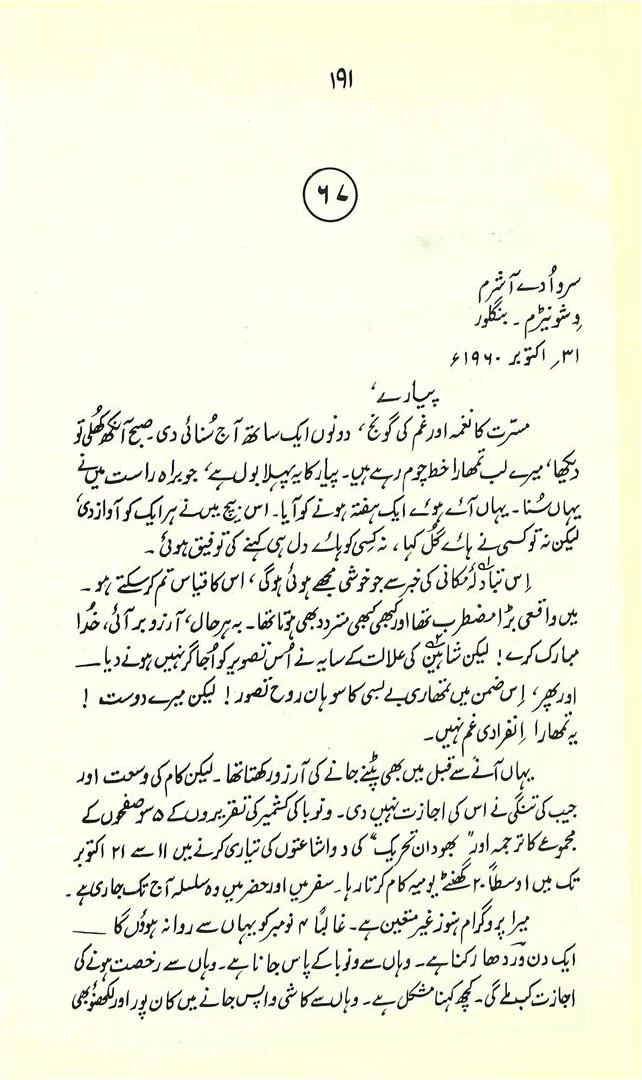 ۱۹۱
۶۷
سروا دے آشرم
وِشونیڑم ۔ بنگلور
۳۱ر اکتوبر ۱۹۶۰ء
پیارے،
مسرّت کا نغمہ اور غم کی گونج، دونوں ایک ساتھ آج سُنائی دی۔ صبح آنکھ کھُلی تو
دیکھا، میرے لب تمھارا خط چوم رہے ہیں۔ پیار کا یہ پہلا بول ہے، جو براہ راست میں نے
یہاں سُنا۔ یہاں آئے ہوئے ایک ہفتہ ہونے کو آیا۔ اس بیچ میں نے ہر ایک کو آواز دی،
لیکن نہ تو کسی نے ہائے گُل کہا، نہ کسی کو ہائے دل ہی کہنے کی توفیق ہوئی ۔
اِس تبادلۂ مکانی کی خبر سے جو خوشی مجھے ہوئی ہوگی، اس کا قیاس تم کر سکتے ہو ۔
میں واقعی بڑا مضطرب تھا اور کبھی کبھی متردد بھی ہوتا تھا۔ بہ ہر حال، آرزو بر آئی، خُدا
مبارک کرے! لیکن شاہین۲ کی علالت کے سایہ نے اُس تصویر کو اُجاگر نہیں ہونے دیا ــــ
اور پھر، اِس ضمن میں تمھاری بے بسی کا سوہان روح تصور! لیکن میرے دوست !
یہ تمھارا اِنفرادی غم نہیں۔
یہاں آنے سے قبل میں بھی پٹنے جانے کی آرزو رکھتا تھا۔ لیکن کام کی وسعت اور
جیب کی تنگی نے اس کی اجازت نہیں دی۔ ونوبا کی کشمیر کی تقریروں کے ۵ سو صفحوں کے
مجموعے کا ترجمہ اور "بھودان تحریک" کی دو اشاعتوں کی تیاری کرنے میں ۱۱ سے ۲۱ اکتوبر
تک میں اوسطاً ۲۰ گھنٹے یومیہ کام کرتا رہا۔ سفر میں اور حضر میں وہ سلسلہ آج تک جاری ہے۔
میرا پروگرام ہنوز غیر متعین ہے۔ غالباً ۴ نومبر کو یہاں سے روانہ ہوؤں گا ــــ
ایک دن وردھا رکنا ہے۔ وہاں سے ونوبا کے پاس جانا ہے۔ وہاں سے رخصت ہونے کی
اجازت کب ملے گی۔ کچھ کہنا مشکل ہے۔ وہاں سے کاشی واپس جانے میں کان پور اور لکھنؤ بھی